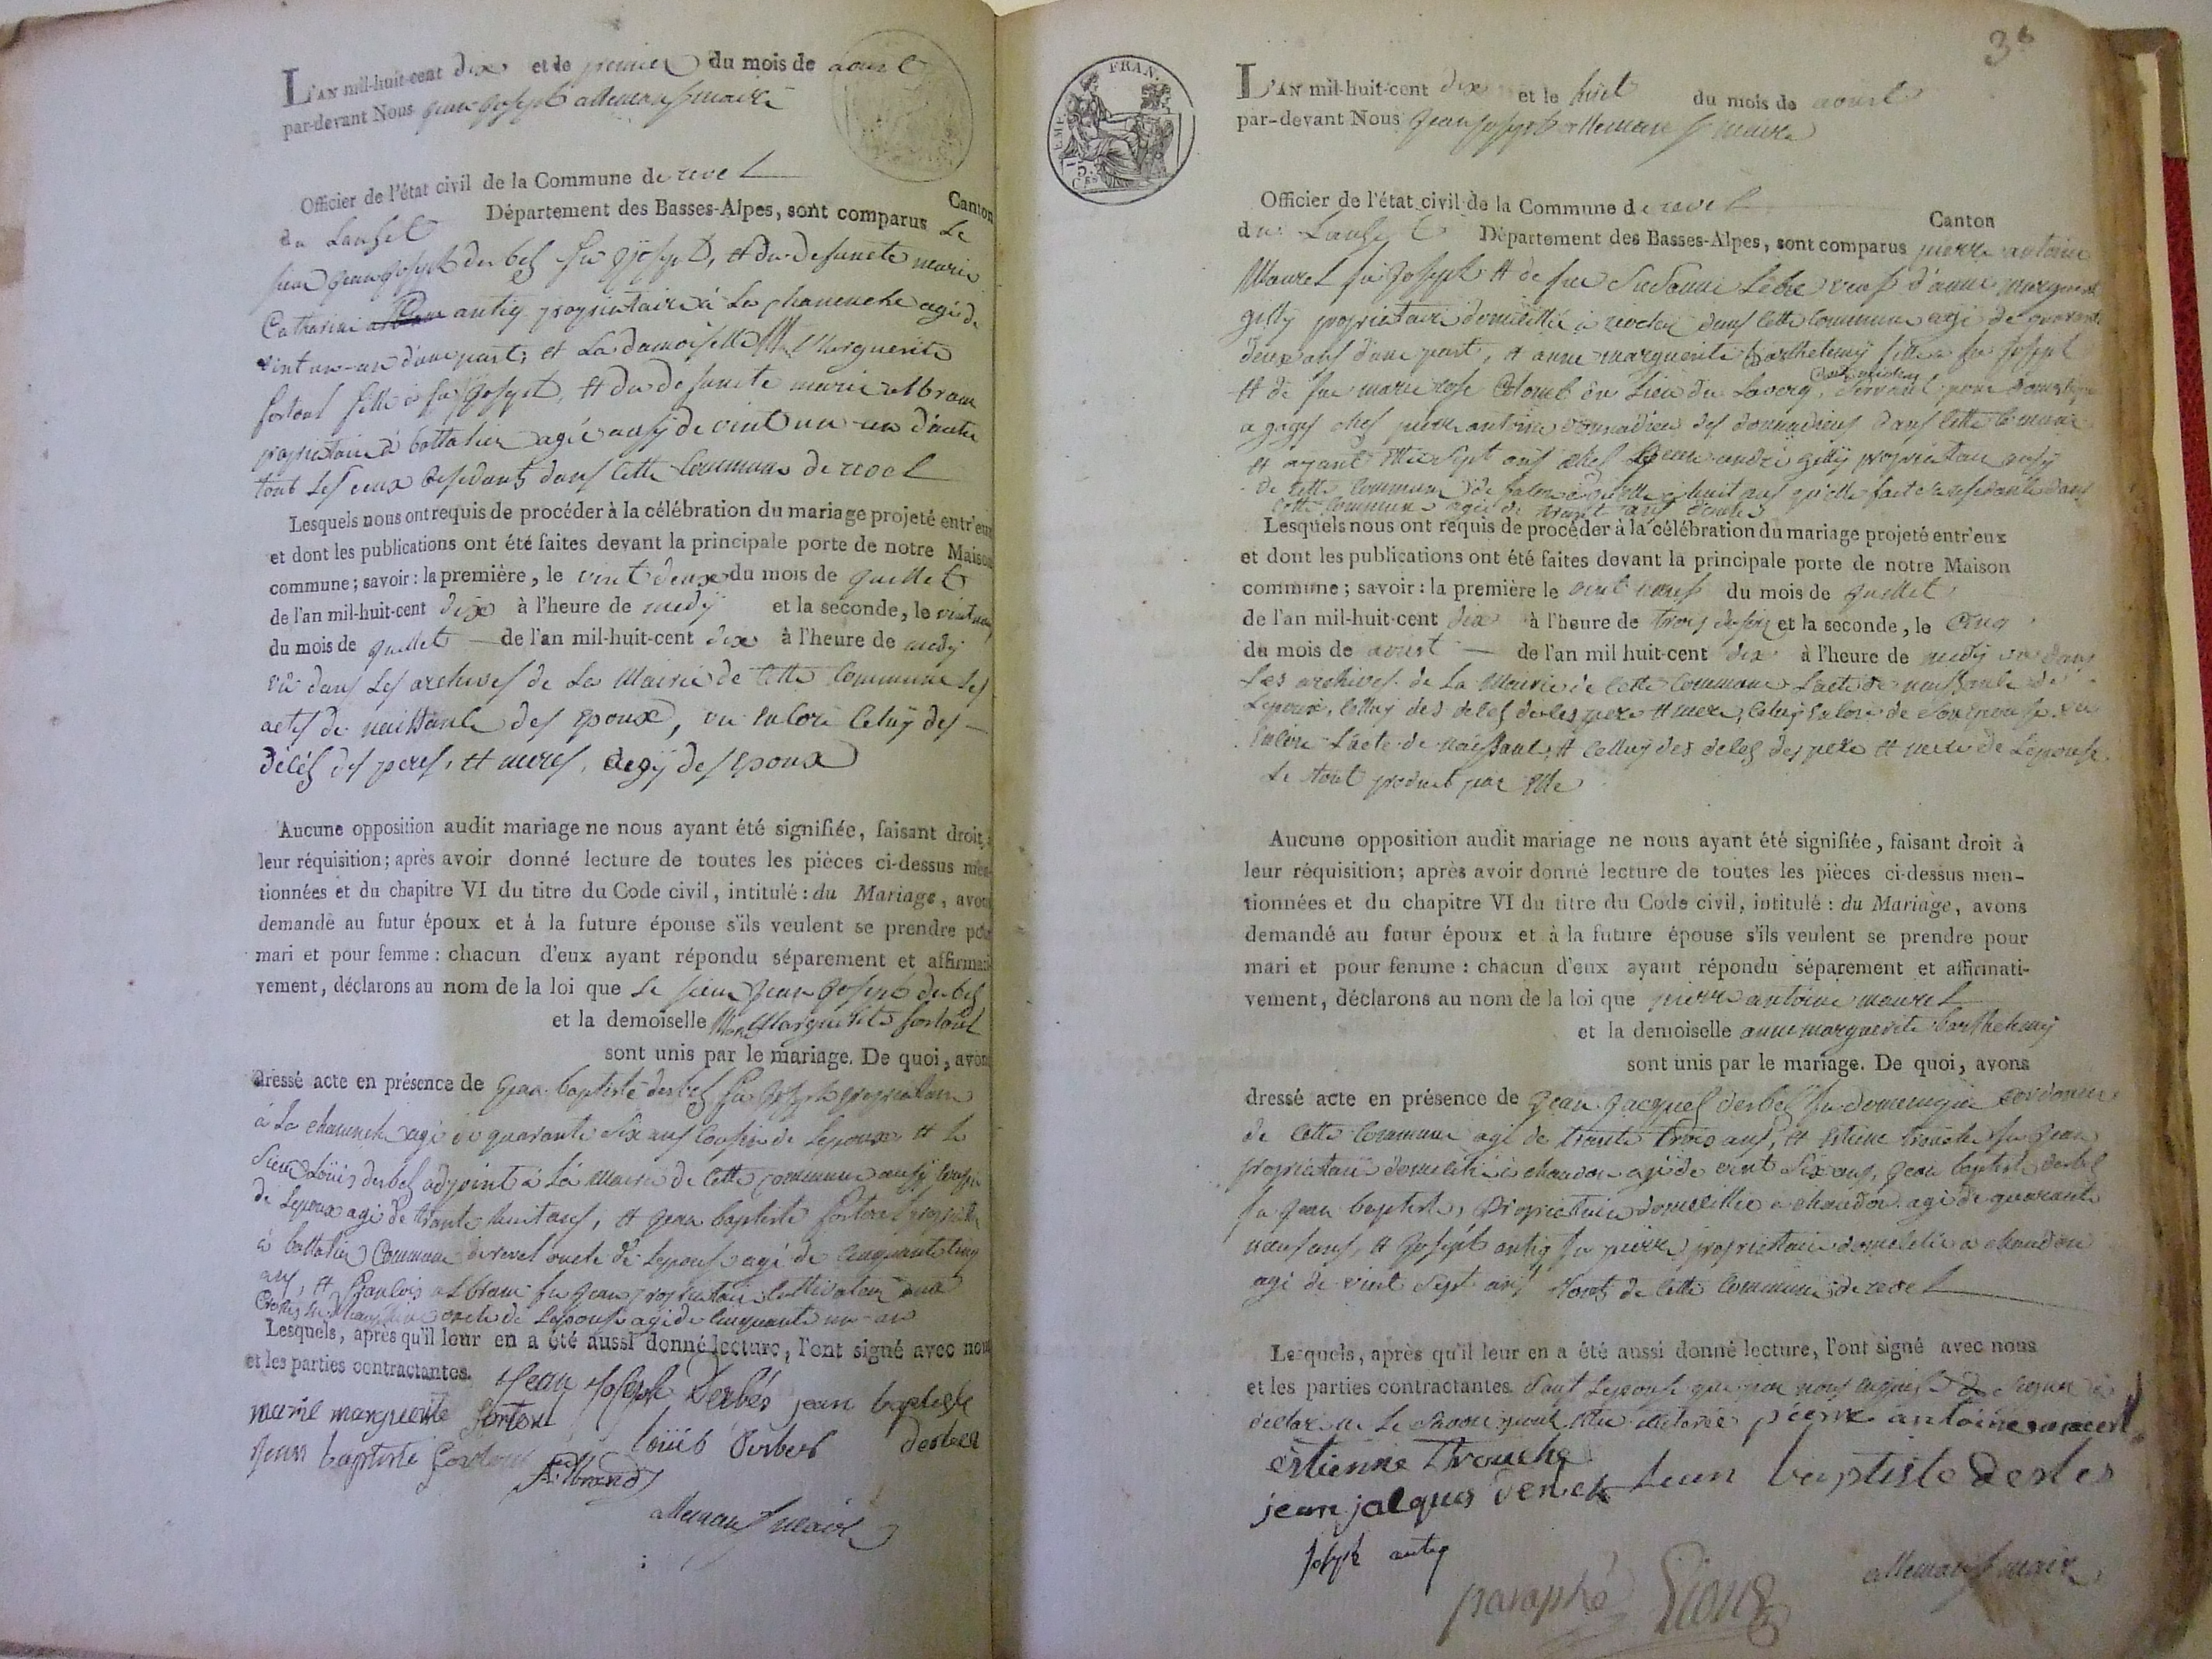 L'AN mil-huit-cent dix et le premier du mois de aoust
par-devant Nous jean joseph allemans maire
Officier de l'état civil de la Commune de revel Canton
du Lauset Département des Basses-Alpes, sont comparus Le
sieur jean joseph derbes fu joseph, et du defuncte marie
Catharine antiq proprietaire à La chanenche agé de
vint un-an d'une part; et La damoiselle Marguerite
fortoul fille à fu joseph, et du defuncte marie albrand
proprietaire à battalier agée ausy de vint un-an d'autre
tout les deux residants dans cette Commune de revel
Lesquels nous ont requis de procéder à la célébration du mariage projeté entr'eux
et dont les publications ont été faites devant la principale porte de notre Maison
commune; savoir: la première, le vint deux du mois de juillet
de l'an mil-huit-cent dix à l'heure de midy et la seconde, le vint neuf
du mois de juillet de l'an mil-huit-cent dix à l'heure de midy
vû dans Les archives de La Mairie de cette Commune Les
actes de naissance des epoux, vu encore Celuy des
décés des peres, et meres, desdits epoux
Aucune opposition audit mariage ne nous ayant été signifiée, faisant droit à
leur réquisition; après avoir donné lecture de toutes les pièces ci-dessus men-
tionnées et du chapitre VI du titre du Code civil, intitulé: du Mariage, avons
demandé au futur époux et à la future épouse s'ils veulent se prendre pour
mari et pour femme: chacun d'eux ayant répondu séparement et affirmati-
vement, déclarons au nom de la loi que Le sieur jean joseph derbes
et la demoiselle Marie Marguerite fortoul
sont unis par le mariage. De quoi, avons
dressé acte en présence de jean baptiste derbes fu joseph proprietaire
à La chanenche agé de quarante six ans Cousin de Lepoux et le
sieur Loüis derbes adjoint à La Mairie de cette commune ausy Cousin
de Lepoux agé de trante huit ans, et jean baptiste fortoul proprietaire
à battalier Commune de revel oncle de Lepouse agé de cinquante cinq
ans, et françois albrand fu jean proprietaire cultivateur aux
oncle de Lepouse agé de cinquante un-an
Lesquels, après qu'il leur en a été aussi donné lecture, l'ont signé avec nous
et les parties contractantes. jean joseph Derbés jean baptiste
marie marguerite fortoul loüis derbes derbes
jean baptiste fortoul
albrand
allemans maire
36
FRAN.
L'AN mil-huit-cent dix et le huit du mois de aoust
par-devant Nous jean joseph allemans maire
Officier de l'état civil de la Commune de revel Canton
du Lauset Département des Basses-Alpes, sont comparus pierre antoine
Maurel fu joseph et de fue Susanne Lebre veuf d'anne marguerite
gilly proprietaire domicillié à dans cette commune agé de quarante
deux ans d'une part, et anne marguerite Barthelemy fille à fu joseph
et de fue marie rose Colomb du Lieu du Laverq servant pour domestique
a gages ches pierre antoine donnadieu des donnadieus dans cette Comune
et ayant ettée sept ans ches jean andré gilly proprietaire ausy
de cette commune huit ans qu'elle fait sa residance dans
cette commune agée de trante ans d'autre
Lesquels nous ont requis de procéder à la célébration du mariage projeté entr'eux
et dont les publications ont été faites devant la principale porte de notre Maison
commune; savoir: la première le vint neuf du mois de juillet
de l'an mil-huit-cent dix à l'heure de trois du soir et la seconde, le Cinq
du mois de aoust de l'an mil huit-cent dix à l'heure de midy vu dans
Les archives de La Mairie de cette Commune L'acte de naissance de
Lepoux, celluy des deces de ses pere et mere, celuy encore de son epouse, vu
encore L'acte de naissance, et celluy des deces des pere et mere de Lepouse
Le tout produit par elle
Aucune opposition audit mariage ne nous ayant été signifiée, faisant droit à
leur réquisition; après avoir donné lecture de toutes les pièces ci-dessus men-
tionnées et du chapitre VI du titre du Code civil, intitulé: du Mariage, avons
demandé au futur époux et à la future épouse s'ils veulent se prendre pour
mari et pour femme: chacun d'eux ayant répondu séparement et affirmati-
vement, déclarons au nom de la loi que pierre antoine maurel
et la demoiselle anne marguerite barthelemy
sont unis par le mariage. De quoi, avons
dressé acte en présence de jean jacques derbes fu domenique cordonier
de cette Commune agé de trante trois ans, et estienne trouche fu jean
proprietaire domicillié à chaudon agé de vint six ans, jean baptiste derbes
fu jean baptiste, proprietaire domicillié à chaudon agé de quarante
neuf ans, et joseph antiq fu pierre proprietaire domicillié à chaudon
agé de vint sept ans touts de cette Commune de revel
Lesquels, après qu'il leur en a été aussi donné lecture, l'ont signé avec nous
et les parties contractantes. sauf Lepouse que par nous requise de signer a
declaré ne Le savoir pour etre illeterée pierre antoine maurel
estienne trouche
jean jacques derbes jean baptiste derbes
joseph antiq
allemans maire
paraphé